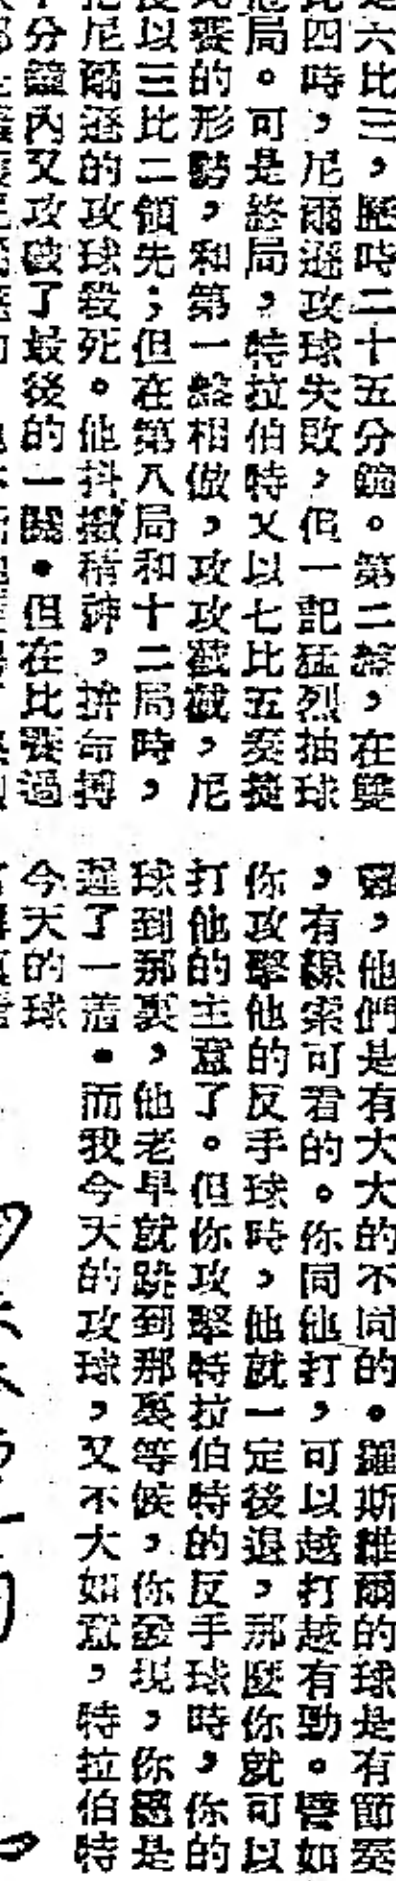 是六比三，歷時二十五分鐘。第二盤，在雙
比四時，尼爾遜攻球失敗，但一記猛烈抽球
局。可是終局，特拉伯特又以七比五奏捷
比賽的形勢，和第一盤相倣，攻攻截截，尼
以三比二領先；但在第八局和十二局時，
尼爾遜的攻球殺死。他抖擻精神，拚命搏
分鐘內又攻破了最後的一關。但在比賽過
，他們是有大大的不同的。羅斯維爾的球是有節奏
，有線索可看的。你同他打，可以越打越有勁。譬如
你攻擊他的反手球時，他就一定後退，那麼你就可以
打他的主意了。但你攻擊特拉伯特的反手球時，你的
球到那裏，他老早就跑到那裏等候，你發現，你總是
遲了一着。而我今天的攻球，又不大如意，特拉伯特
今天的球